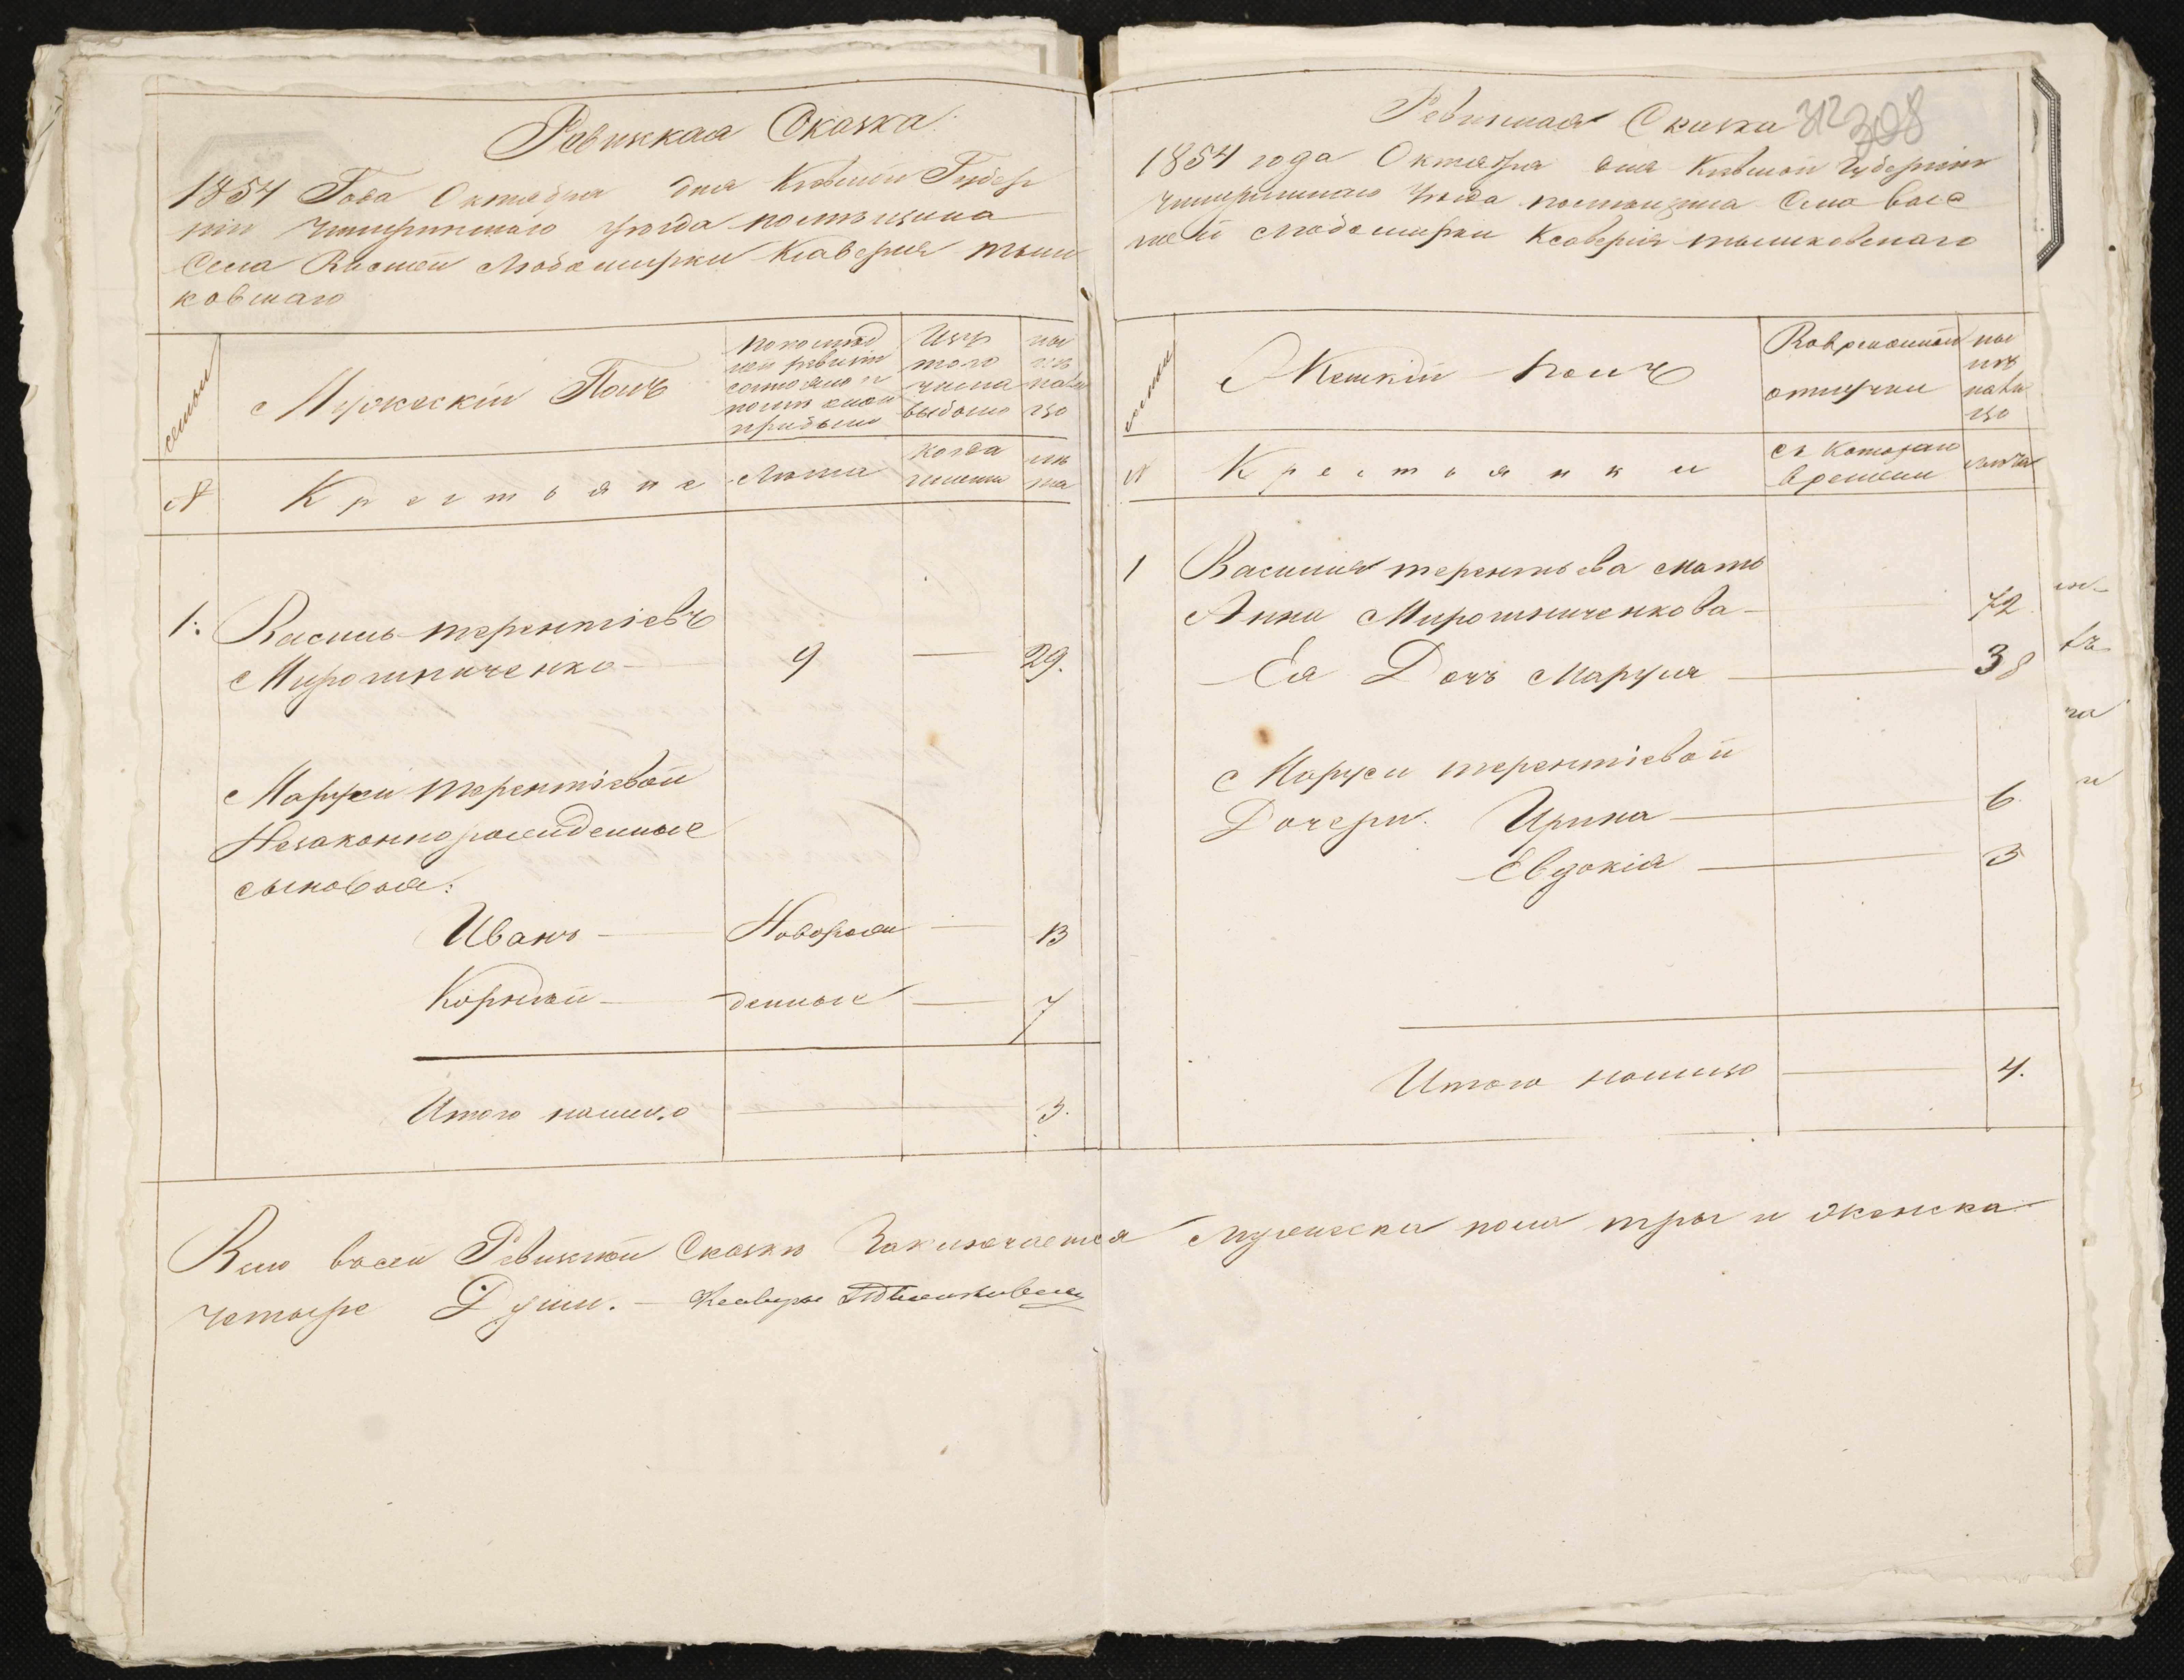 Ревижкая Сказка.
1854 Года Октября дня Кіевской Губер
ніи Чигиринскаго уѣзда помѣщика
Села Ивасшей Любомирки Ксаверия тыш
ковскаго
семьи
Мужескій Полъ
по послѣд
ней ревизіи
состояло и
послѣ оной
прибыло
Изъ
того
числа
выбыло
ны
нѣ
на ли
цо
№
Крестьяне
Лѣта
когда
именно
лѣ
та
1:
Василь терентіевъ
Мирошниченко — 9 — 29.
Маруси терентіевой
Незаконнорожиденные
сыновья:
Иванъ — Поворож — 13
Корнѣй — денные — 7
Итого налицо — 3.
Ревизская Сказка 312 308
1854 года Октября дня Кіевской Губерніи
Чигиринскаго уѣзда помѣщика Села Ивас
шей Любомирки Ксаверія тышковскаго
семьи
Женскій полъ
Во временной
отлучки
ны
нѣ
на ли
цо
№
Крестьянки
съ Котораго
времени
лѣта
1
Василия терентьева мать
Анна Мирошниченкова — 72
Ея Дочь Маруся — 38
Маруси терентіевой
Дочери. Ирина — 6
Евдокія — 3
Итого налицо — 4.
Всего въсей Ревизкой Сказки Заключается Мужеска пола три и Женска
четыре Души. — Ксаверы